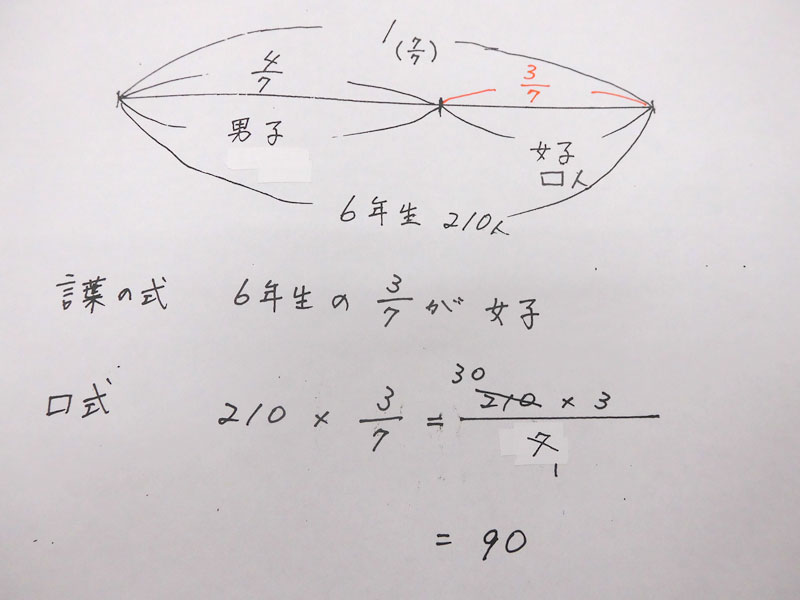 1
(7/7)
4/7
3/7
男子
女子
□人
6年生 210人
言葉の式 6年生の 3/7 が 女子
□式 210 × 3/7 = 30 210 × 3 / 7 1
= 90